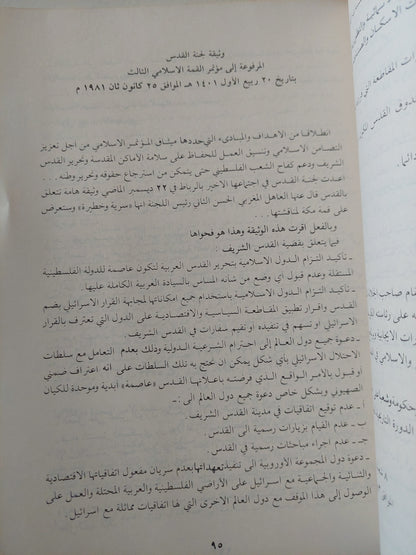 وثيقة لجنة القدس
المرفوعة إلى مؤتمر القمة الاسلامي الثالث
بتاريخ ٢٠ ربيع الأول ١٤٠١ هـ الموافق ٢٥ كانون ثان ١٩٨١ م
انطلاقا من الاهداف والمبادىء التي حددها ميثاق المؤتمر الاسلامي من اجل تعزيز
التضامن الاسلامي وتنسيق العمل للحفاظ على سلامة الأماكن المقدسة وتحرير القدس
الشريف ودعم كفاح الشعب الفلسطيني حتى يتمكن من استرجاع حقوقه وتحرير وطنه . . .
اعدت لجنة القدس في اجتماعها الاخير بالرباط في ٢٢ ديسمبر الماضي وثيقة هامة تتعلق
بالقدس قال عنها العاهل المغربي الحسن الثاني رئيس اللجنة انها «سرية وخطيرة» وستعرض
على قمة مكة لمناقشتها . . .
وبالفعل اقرت هذه الوثيقة وهذا هو فحواها
فيما يتعلق بقضية القدس الشريف .
ـ تأكيد التزام الدول الاسلامية بتحرير القدس العربية لتكون عاصمة للدولة الفلسطينية
المستقلة وعدم قبول اي وضع من شأنه المساس بالسيادة العربية الكاملة عليها .
ـ تأكيد التزام الدول الاسلامية باستخدام جميع امكاناتها لمجابهة القرار الاسرائيلي بضم
القدس واقرار تطبيق المقاطعة السياسية والاقتصادية على الدول التي تعترف بالقرار
الاسرائيلي او تسهم في تنفيذه او تقيم سفارات في القدس الشريف .
ـ دعوة جميع دول العالم إلى احترام الشرعية الدولية وذلك بعدم التعامل مع سلطات
الاحتلال الاسرائيلي بأي شكل يمكن ان تحتج به تلك السلطات على انه اعتراف ضمني
او قبول بالامر الواقع الذي فرضته باعلانها القدس «عاصمة» ابدية وموحدة للكيان
الصهيوني وبشكل خاص دعوة جميع دول العالم الى :ـ
أ ـ عدم توقيع اتفاقيات في مدينة القدس الشريف .
ب ـ عدم القيام بزيارات رسمية الى القدس .
جـ ـ عدم اجراء مباحثات رسمية في القدس .
ـ دعوة دول المجموعة الأوروبية الى تنفيذ تعهداتها بعدم سريان مفعول اتفاقياتها الاقتصادية
والثنائية والجماعية مع اسرائيل على الأراضي الفلسطينية والعربية المحتلة والعمل على
الوصول إلى هذا الموقف مع دول العالم الاخرى التي لها اتفاقيات مماثلة مع اسرائيل .
٩٥